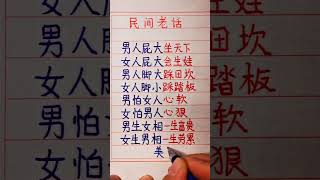 民间老话
男人屁大坐天下
女人屁大会生娃
男人脚大踩田坎
女人脚小踩踏板
男怕女人心软
女怕男人心狠
男生女相一生富贵
女生男相一生劳累
美